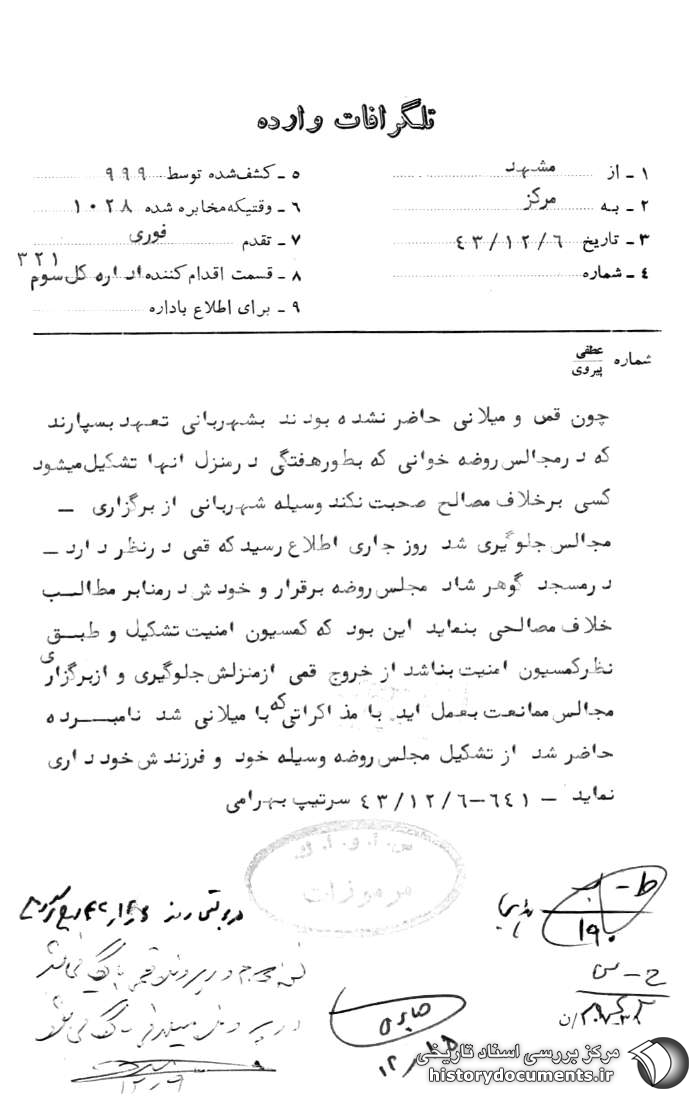 تلگرافات وارده
۱ ـ از مشهد
۲ ـ به مرکز
۳ ـ تاریخ ۴۳/۱۲/۶
۴ ـ شماره
۵ ـ کشف‌شده توسط ۹۹۹
۶ ـ وقتیکه مخابره شده ۱۰۲۸
۷ ـ تقدم فوری
۸ ـ قسمت اقدام کننده اداره کل سوم ۳۲۱
۹ ـ برای اطلاع باداره
شماره عطفی
پیروی
چون قمی و میلانی حاضر نشده بودند بشهربانی تعهد بسپارند
که درمجالس روضه خوانی که بطورهفتگی درمنزل انها تشکیل میشود
کسی برخلاف مصالح صحبت نکند وسیله شهربانی از برگزاری ـ
مجالس جلوگیری شد روز جاری اطلاع رسید که قمی درنظر دارد ـ
درمسجد گوهر شاد مجلس روضه برقرار و خودش درمنابر مطالب
خلاف مصالحی بنماید این بود که کمسیون امنیت تشکیل و طبق
نظرکمسیون امنیت بناشد از خروج قمی ازمنزلش جلوگیری و ازبرگزاری
مجالس ممانعت بعمل اید با مذاکراتی که با میلانی شد نامبرده
حاضر شد از تشکیل مجلس روضه وسیله خود و فرزندش خودداری
نماید ـ ۶۴۱-۴۳/۱۲/۶ سرتیپ بهرامی
س.ا.و.ا.ک
مرموزات
صابری
مرکز بررسی اسناد تاریخی
historydocuments.ir